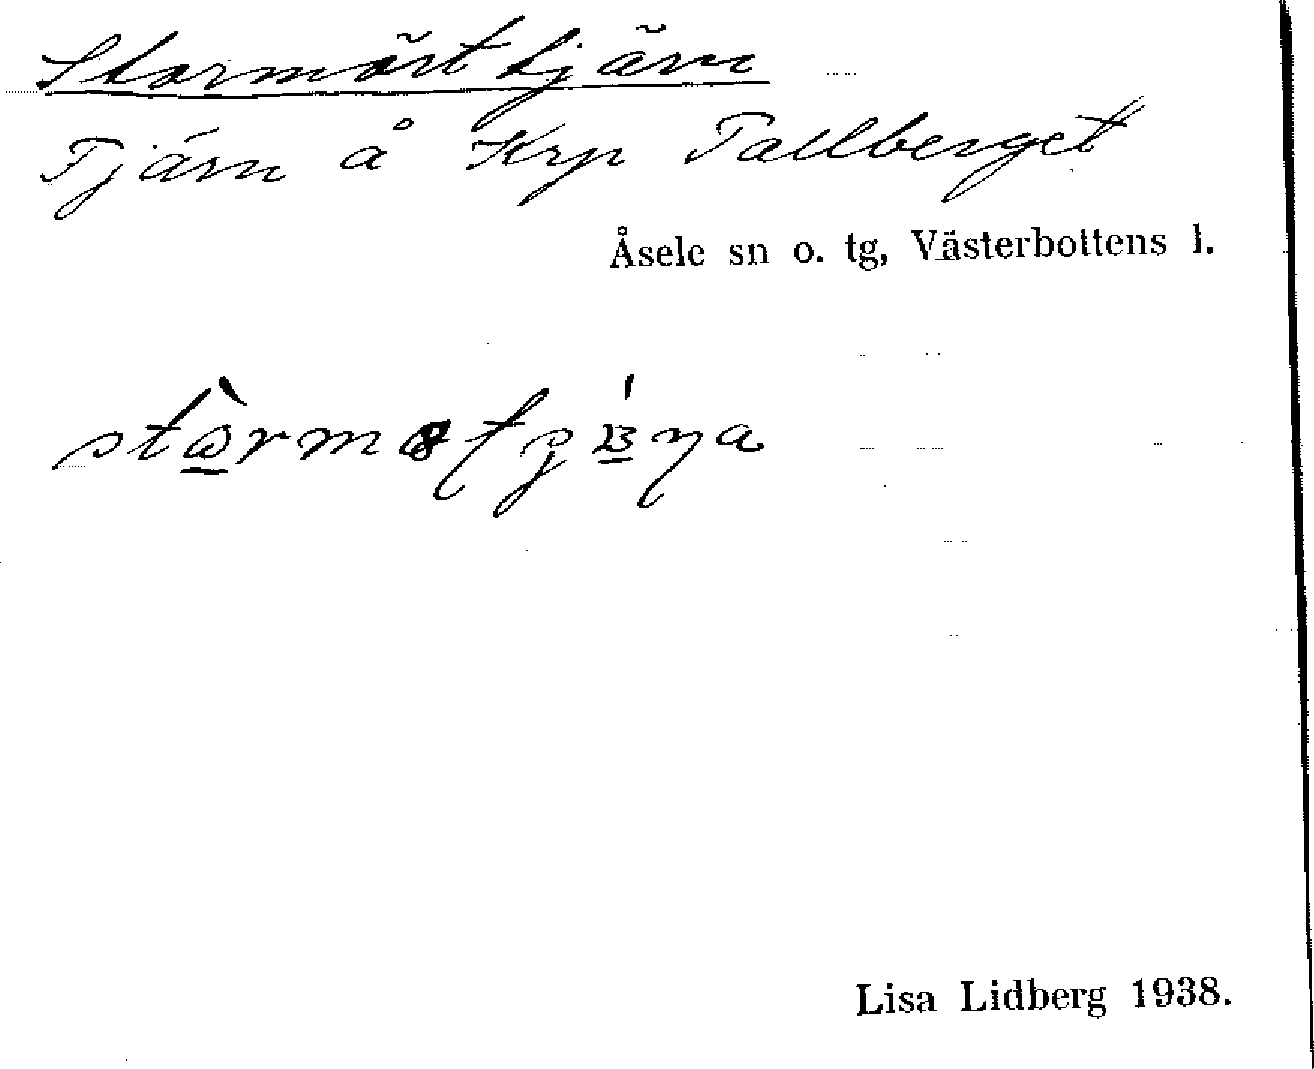 Stormörttjärn
Tjärn å Krp Tallberget
Åsele sn o. tg, Västerbottens l.
Lisa Lidberg 1938.